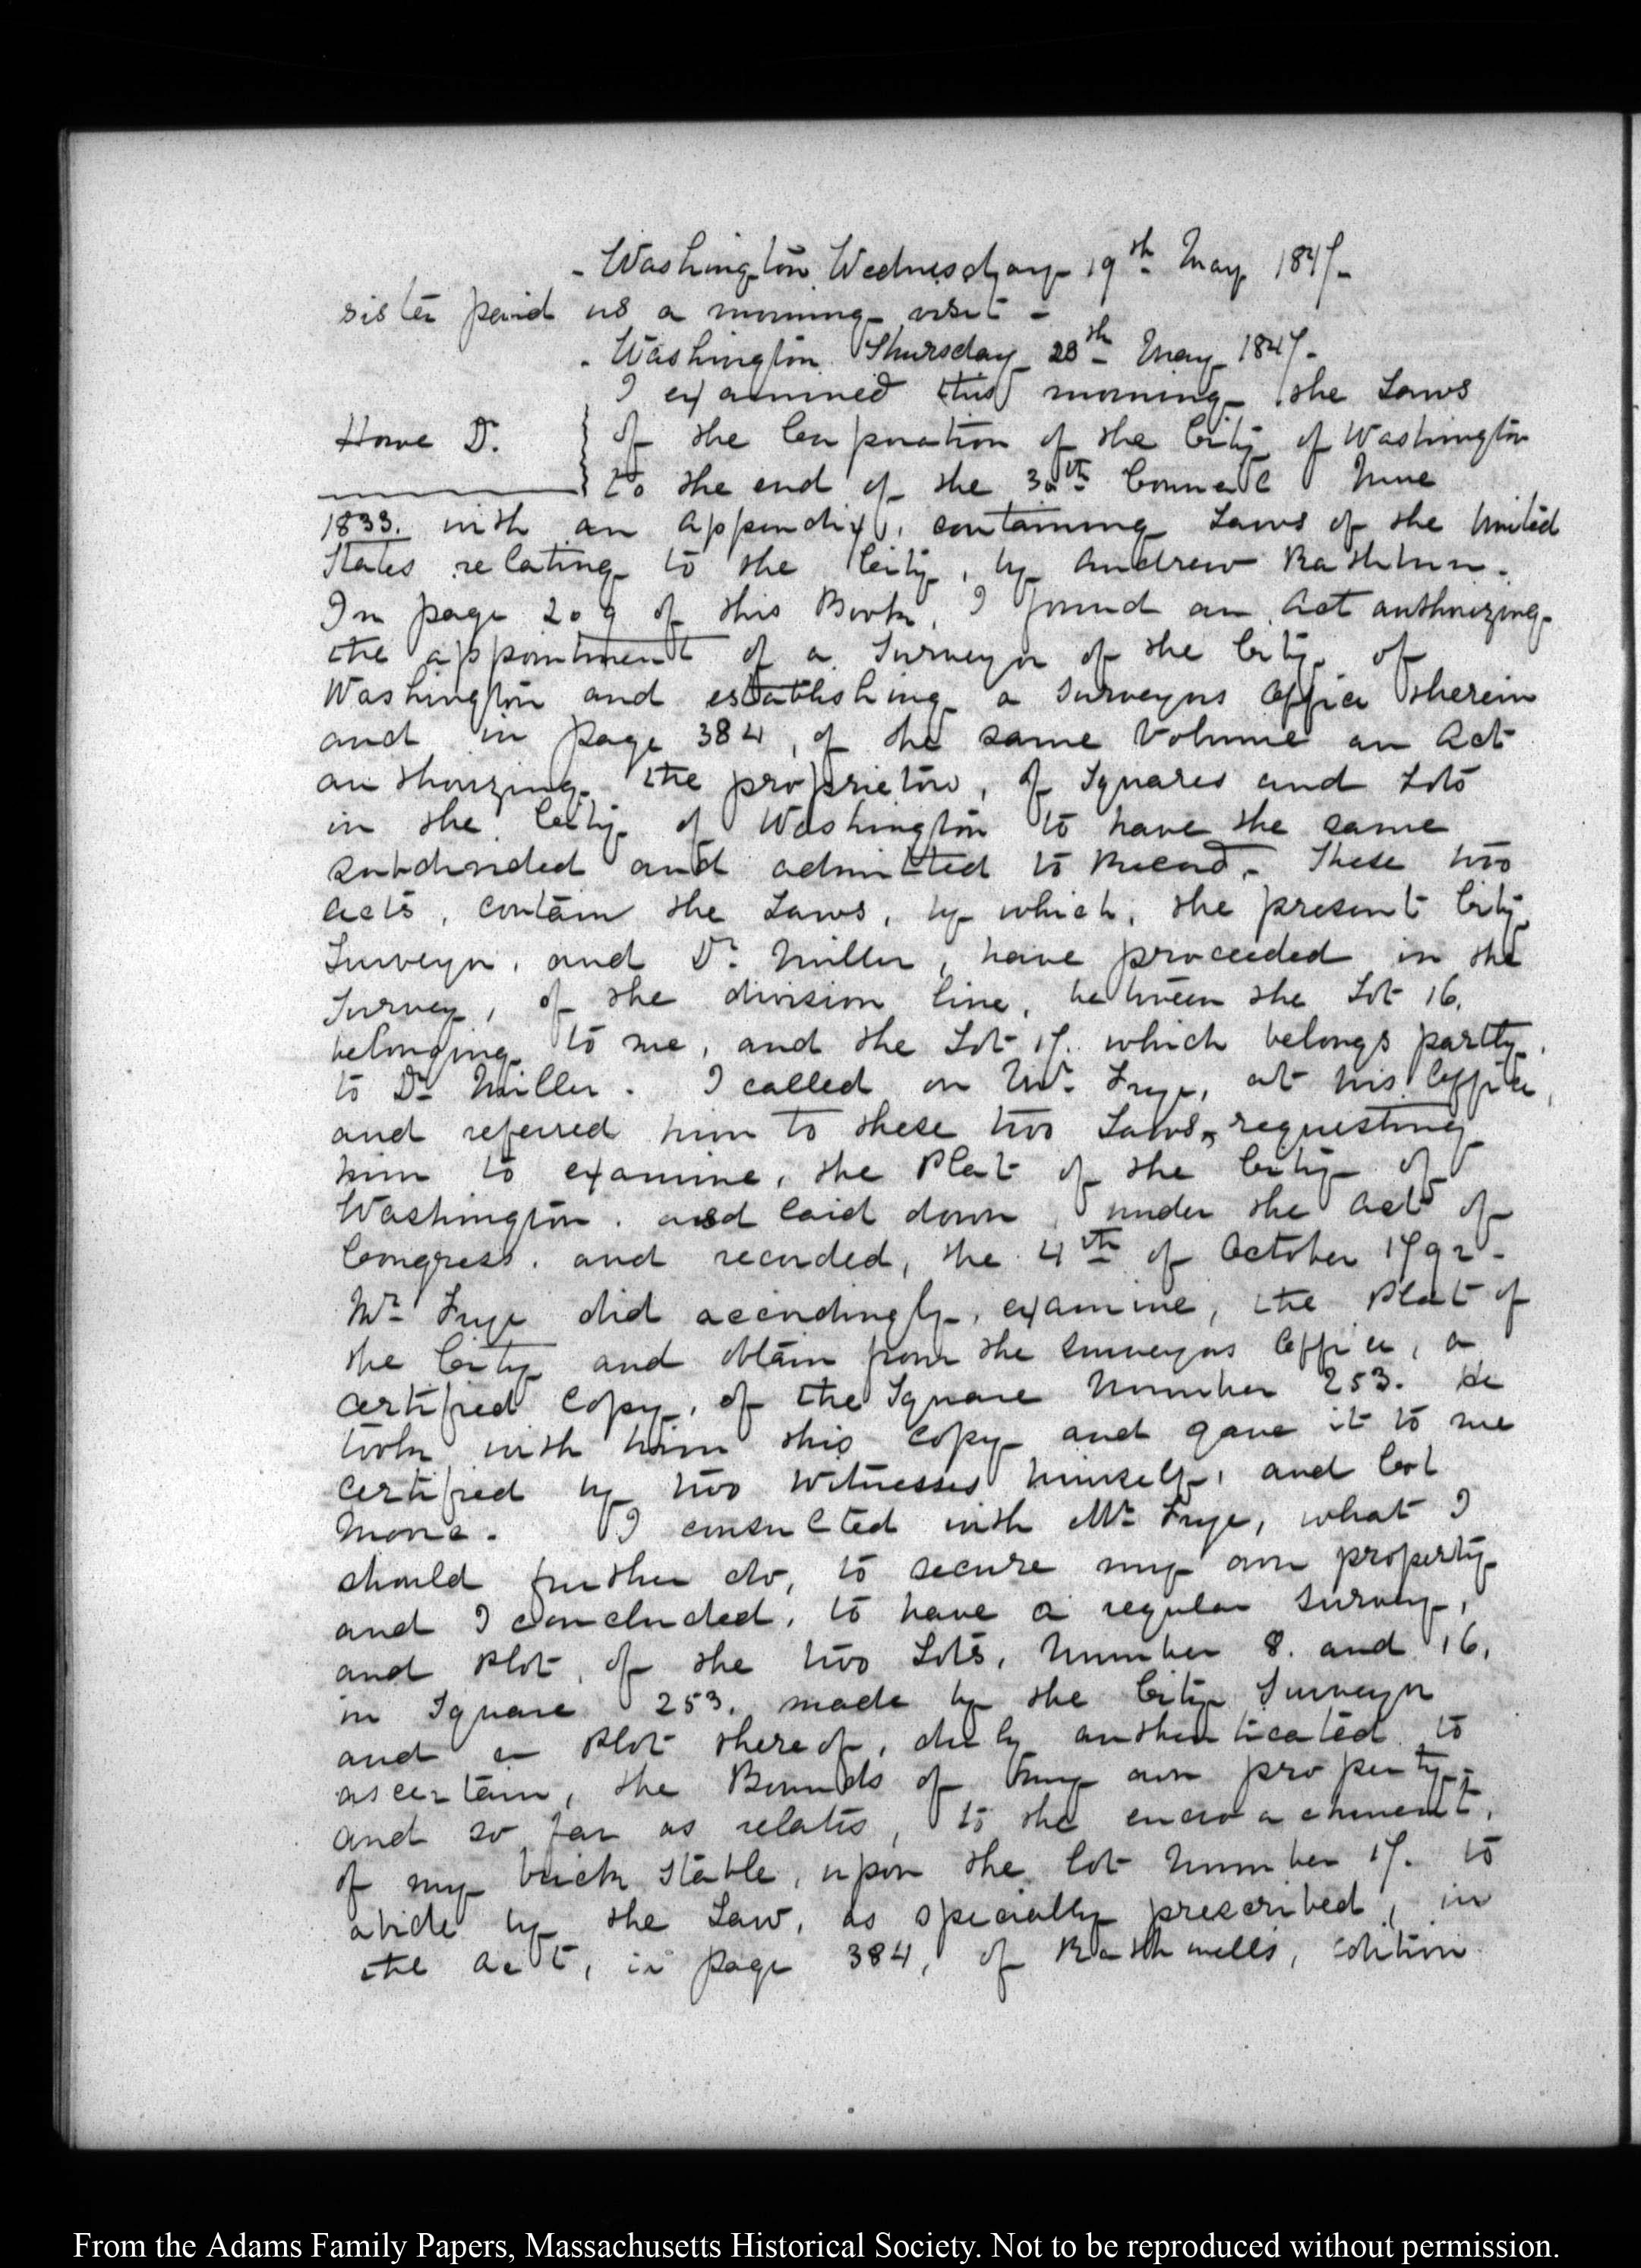 - Washington Wednesday 19th May 1847-
sister paid us a morning visit -
- Washington Thursday 20th May 1847-
I examined this morning the Laws
Howe D. of the Corporation of the City of Washington
to the end of the 30th Council June
1833. with an Appendix, containing Laws of the United
States relating to the City, by Andrew Rothwell.
In page 209 of this Book, I found an Act authorizing
the appointment of a Surveyor of the City of
Washington and establishing a Surveyors Office therein
and in page 384, of the same Volume an Act
authorizing the proprietors, of Squares and Lots
in the City of Washington to have the same
subdivided and admitted to Record. These two
Acts, contain the Laws, by which, the present City
Surveyor, and Dr. Miller, have proceeded in the
Survey, of the division line, between the Lot 16.
belonging to me, and the Lot 17. which belongs partly
to Dr Miller. I called on Mr. Frye, at his Office,
and referred him to these two Laws, requesting
him to examine, the Plat of the City of
Washington. and laid down, under the Act of
Congress. and recorded, the 4th of October 1792-
Mr Frye did accordingly, examine, the Plat of
the City and obtain from the surveyors Office, a
certified Copy, of the Square Number 253. He
took with him this Copy and gave it to me
certified by two witnesses himself, and Col
I consulted with Mr Frye, what I
should further do, to secure my own property
and I concluded, to have a regular survey,
and Plot, of the two Lots, Number 8. and 16,
in Square 253. made by the City Surveyor
and a Plot thereof, duly authenticated to
ascertain, the Bounds of my own property-
and so far as relates, to the encroachment,
of my brick Stable, upon the lot Number 17. to
abide by the Law, as specially prescribed, in
the Act, in page 384, of Rothwells, edition